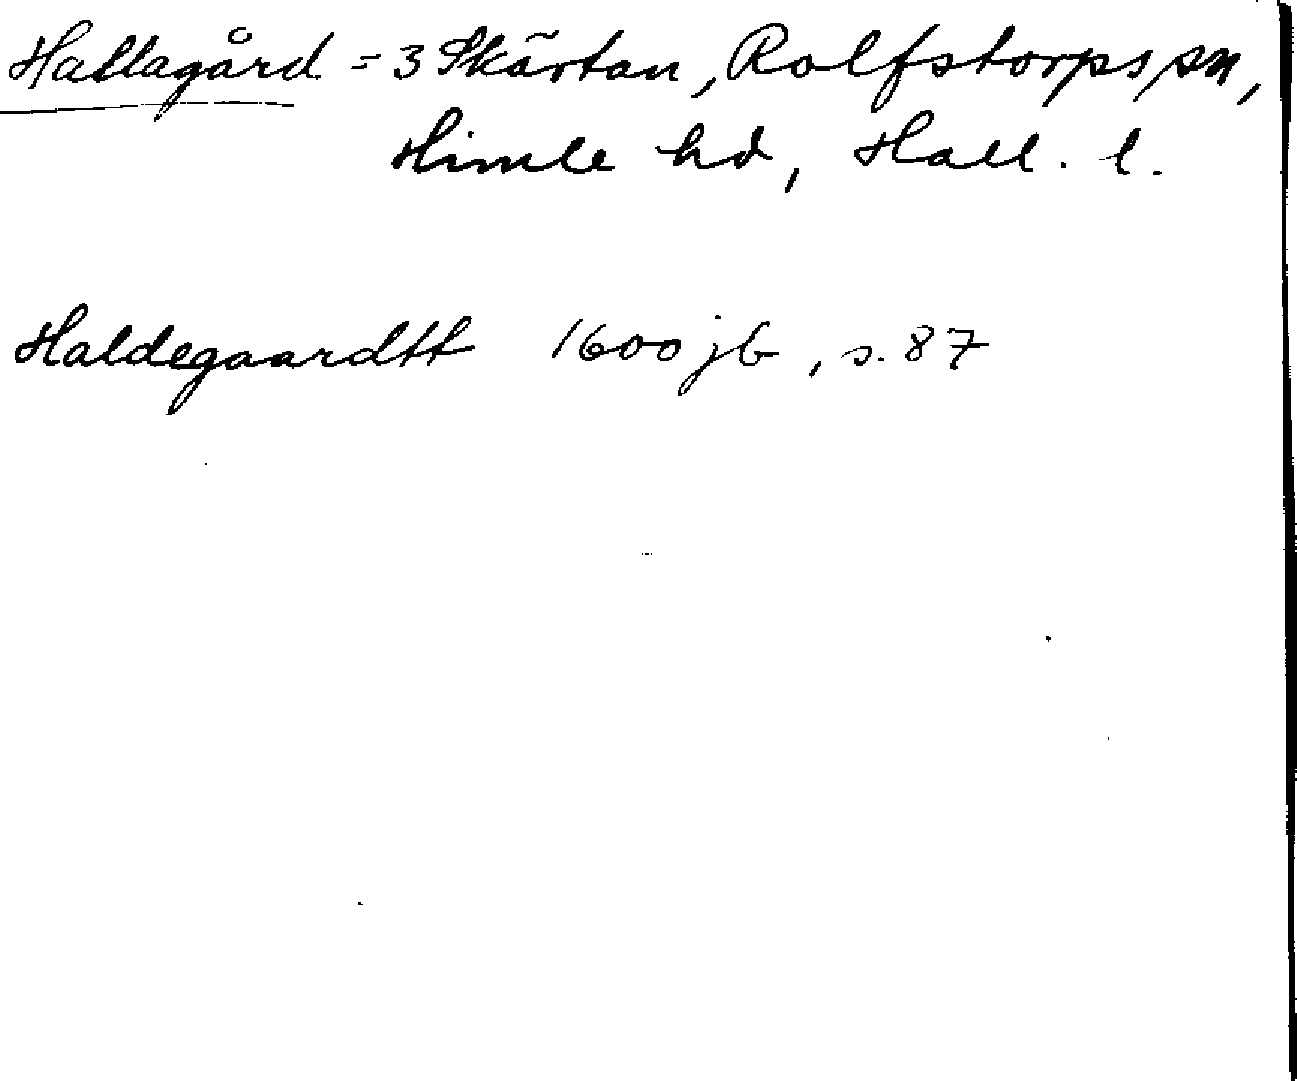 Hallagård = 3 Skärtan, Rolfstorps sn,
Himle hd, Hall. l.
Haldegaardtt 1600 jb, s. 87